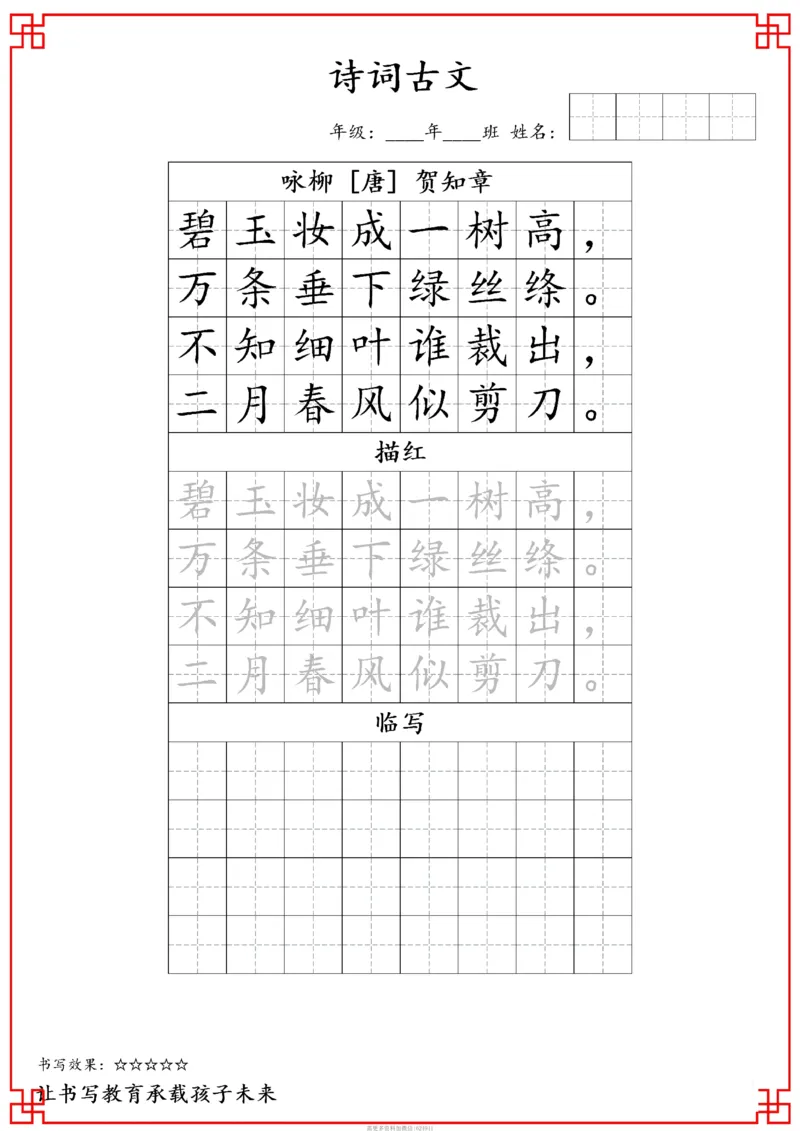 诗词古文
年级：____年____班 姓名：
咏柳 [唐] 贺知章
碧玉妆成一树高，
万条垂下绿丝绦。
不知细叶谁裁出，
二月春风似剪刀。
描红
碧玉妆成一树高，
万条垂下绿丝绦。
不知细叶谁裁出，
二月春风似剪刀。
临写
书写效果：☆☆☆☆☆
让书写教育承载孩子未来